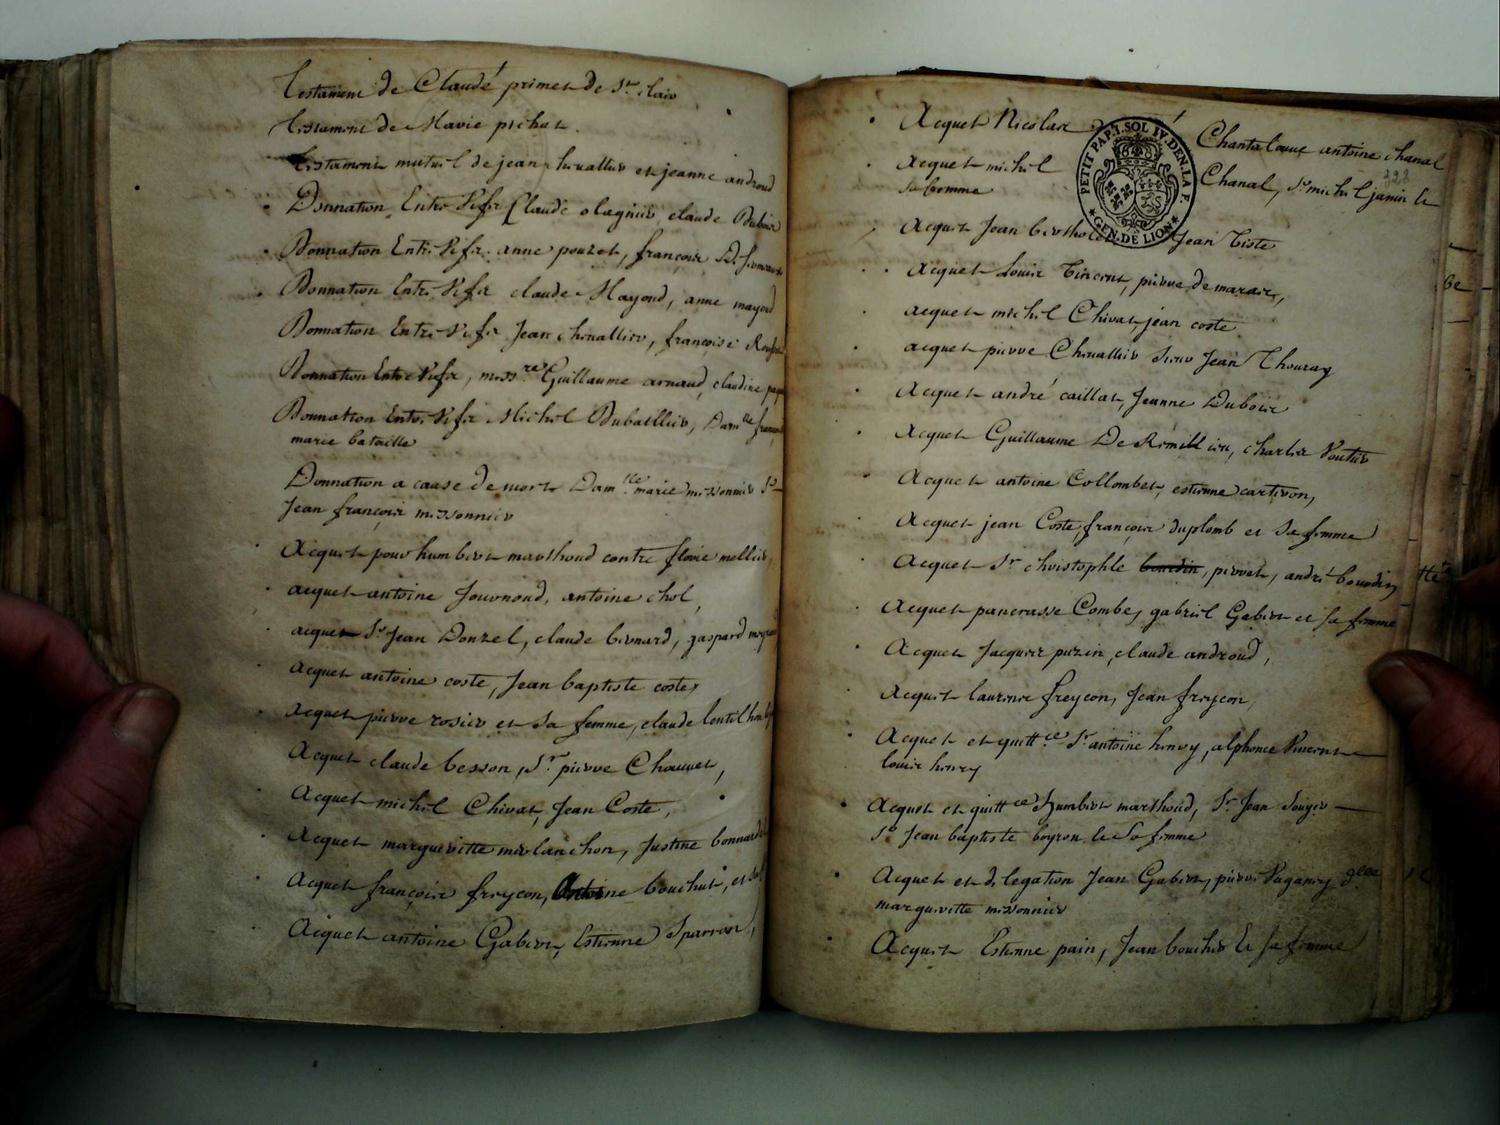 Testament de Claude primet de St clair
Testament de Marie pichat.
Testament mutuel de jean chevallier et jeanne androud
Donnation Entre Vifs Claude olagnier, claude Dubois
Donnation Entre Vifs anne pouzet, françois
Donnation Entre Vifs claude Mayoud, anne mayoud
Donnation Entre Vifs Jean chevallier, françoise
Donnation Entre Vifs, messre Guillaume arnaud, claudine
Donnation Entre Vifs Michel Dubaillier, Damlle
marie bataille
Donnation a cause de mort Damlle marie missonnier Sr
Jean françois missonnier
Acquet pour humbert marthoud contre florie mellier
acquet antoine Journoud, antoine chol,
acquet Sr Jean Donzel, claude bernard, gaspard
Acquet antoine coste, Jean baptiste coste,
Acquet pierre rosier et sa femme, claude
Acquet claude besson, Sr pierre Chouvet,
Acquet michel Chivat, Jean Coste,
Acquet margueritte merlanchon, Justine
Acquet françois freycon, Antoine bouchut, et
Acquet antoine Gabert, Estienne Sparron,
Acquet Nicolas Chantelauve antoine chanal
328
Acquet michel Chanal, Sr michel jamin le
sa femme
PETIT PAP. 1. SOL IV. DEN. LA F.
GEN. DE LION
Acquet Jean Jean Tiste
Acquet Louis Vincent, pierre demarais,
acquet michel Chivat, jean coste
acquet pierre Chevallier Sieur Jean Thouray
Acquet andré caillat, Jeanne Dubois
Acquet Guillaume De Remillieu, charles
Acquet antoine Collombet, estienne cartiron,
Acquet jean Coste, françois duplomb et sa femme
Acquet Sr christophle bourdin, pierre, andré bourdin
Acquet pancrasse Combe, gabriel Gabert et sa femme
Acquet Jacques puzin, claude androud,
Acquet laurence freycon, Jean freycon,
Acquet et quittce Sr antoine henry, alphonce Vincent
louis henry
Acquet et quittce humbert marthoud, Sr Jean
Sr Jean baptiste boyron et Sa femme
Acquet et delegation Jean Gabert, pierre
margueritte missonnier
Acquet Estienne pain, Jean boucher Et sa femme